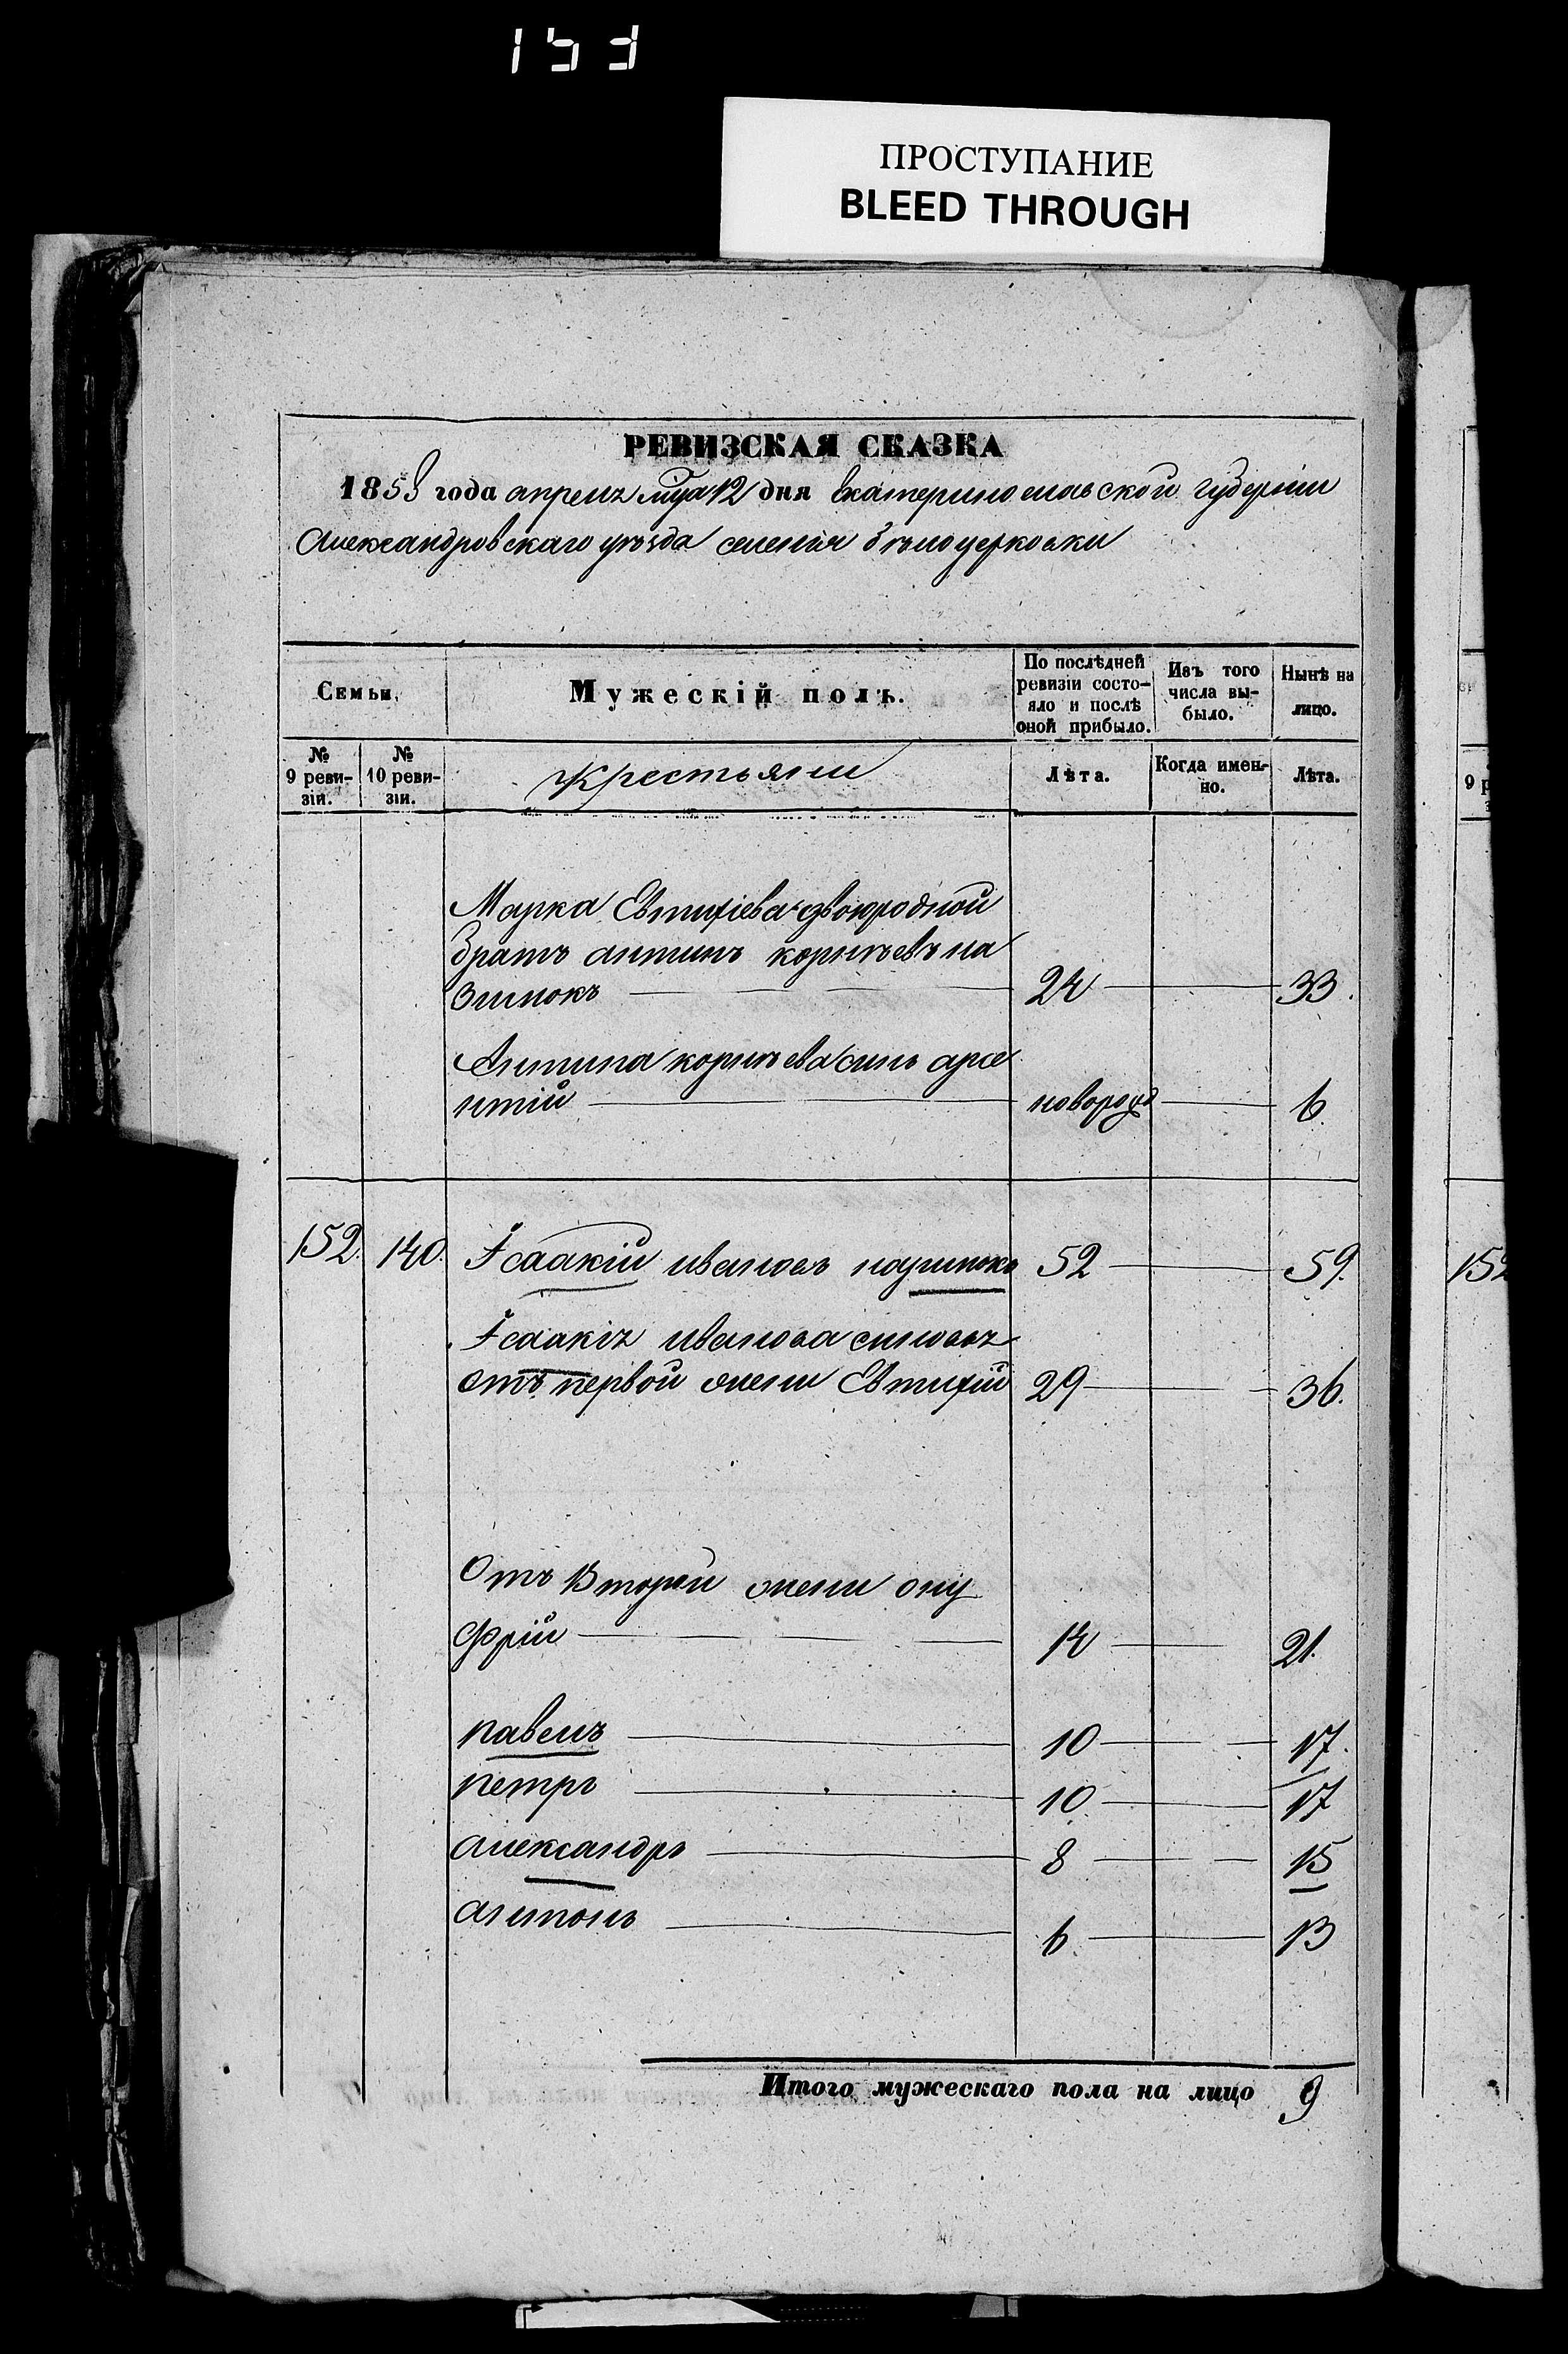 153
ПРОСТУПАНИЕ
BLEED THROUGH
РЕВИЗСКАЯ СКАЗКА
1858 года апреля мца 12 дня Екатеринославской губерніи
Александровскаго уѣзда селенія Бѣлоцерковки
Семьи.
Мужескій полъ.
По послѣдней ревизіи состо-
яло и послѣ оной прибыло.
Изъ того числа вы-
было.
Нынѣ на лицо.
№ 9 реви-
зіи.
№ 10 реви-
зіи.
Крестьяни
Лѣта.
Когда имен-
но.
Лѣта.
Марка Евтихіева двоюродной
братъ антипъ корнѣевъ па
24 33.
Антипа корнѣева сынъ арсе
нтій новорожд 6
152. 140. Ісаакій ивановъ 52 59.
Ісаакія иванова сыновья
отъ первой жены Евтихій 29 36.
Отъ Второй жены ону
фрій 14 21.
павелъ 10 17.
петръ 10. 17
александръ 8 15
антонъ 6. 13
Итого мужескаго пола на лицо 9
9 р
152